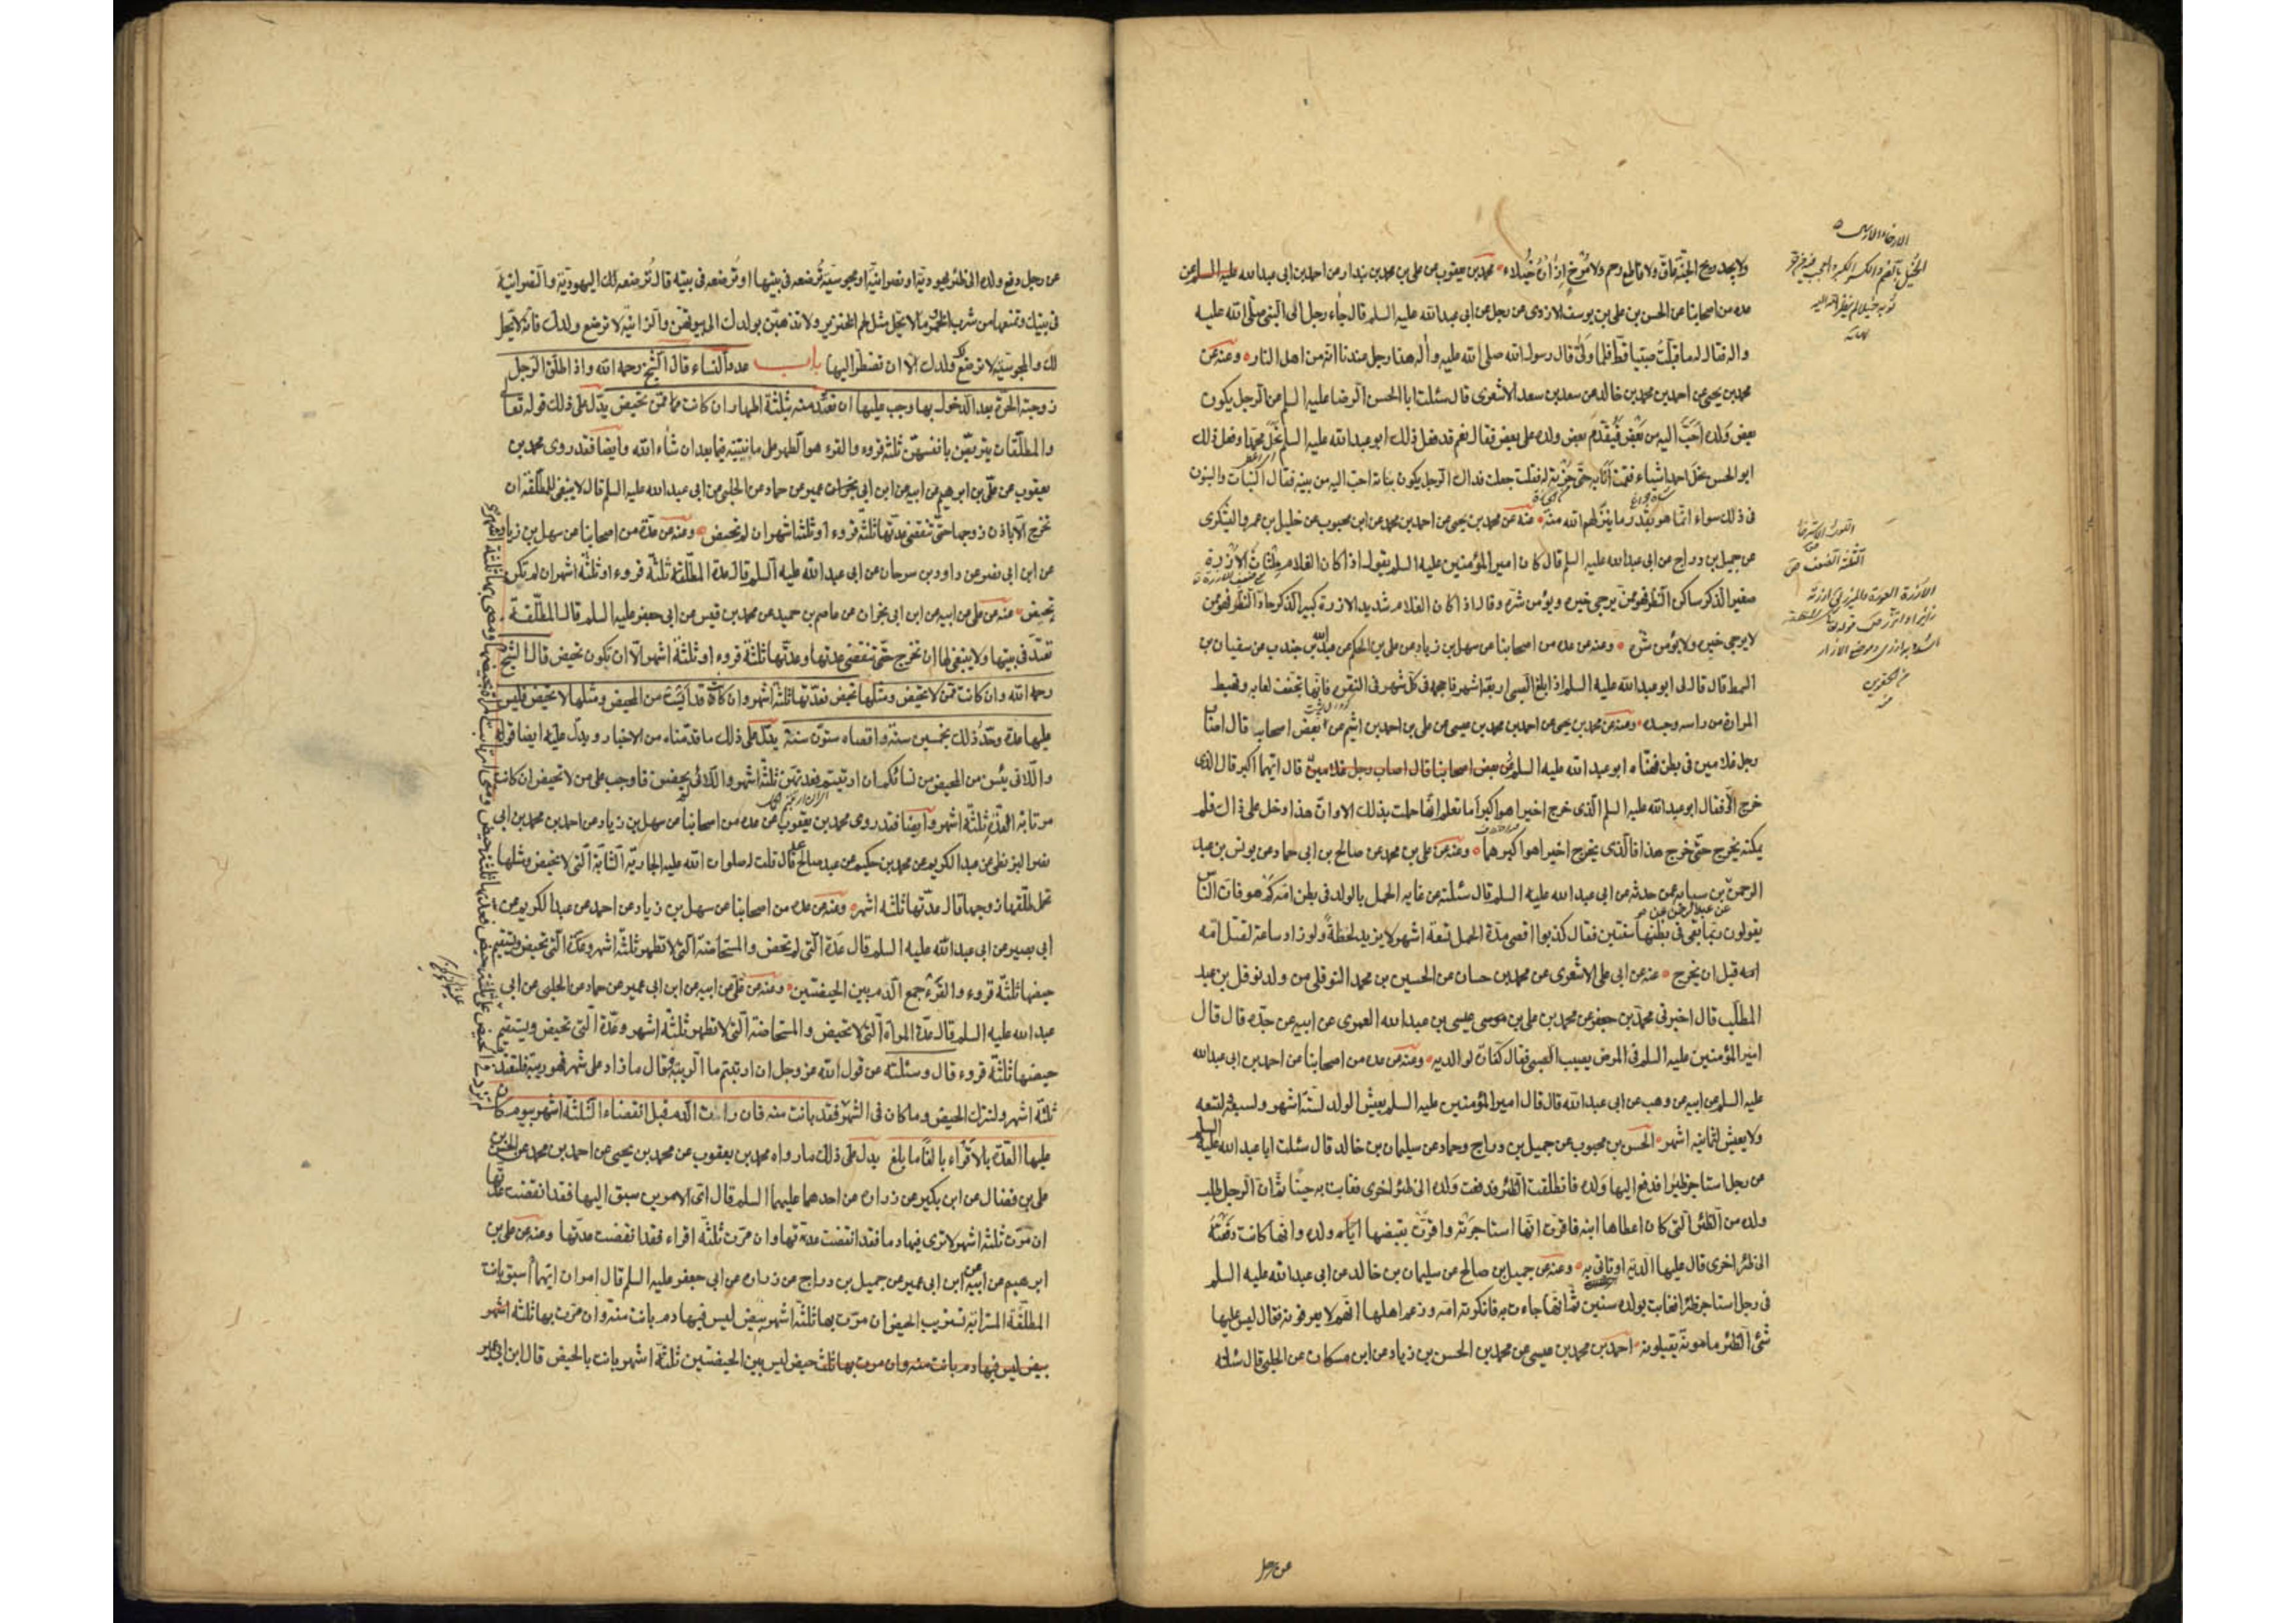 ولا يجد ريح الجنة عاق ولا قاطع رحم ولا مرخ إزاره خيلاء محمد بن يعقوب عن علي بن محمد بن بندار عن احمد بن ابى عبدالله عن
عدة من اصحابنا عن الحسن بن علي بن يوسف الازدى عن رجل عن ابى عبدالله عليه السلم قال جاء رجل الى النبي صلى الله عليه
واله فقال له ما قبلت صبيا قط فلما ولى قال رسول الله صلى الله عليه وآله هذا رجل عندنا انه من اهل النار وعنه عن
محمد بن يحيى عن احمد بن محمد بن خالد عن سعد بن سعد الاشعرى قال سئلت ابا الحسن الرضا عليه السلم عن الرجل يكون
بعض ولده احب اليه من بعض فيقدم بعض ولده على بعض فقال نعم قد فعل ذلك ابو عبدالله عليه السلم نحل محمدا وفعل ذلك
ابو الحسن نحل احمد شيئاء فقمت انا به حتى حزته له فقلت جعلت فداك الرجل يكون بناته احب اليه من بنيه فقال البنات والبنون
فى ذلك سواء انما هو بقدر ما ينزلهم الله منه عنه عن محمد بن يحيى عن احمد بن محمد عن ابن محبوب عن خليل بن عمرو اليشكرى
عن جميل بن دراج عن ابى عبدالله عليه السلم قال كان امير المؤمنين عليه السلم يقول اذا كان الغلام ملتاث الازرة
صغير الذكر ساكن النظر فهو ممن يرجى خيره ويؤمن شره وقال اذا كان الغلام شديد الازرة كبير الذكر حاد النظر فهو ممن
لا يرجى خيره ولا يؤمن شره وعنه عن عدة من اصحابنا عن سهل بن زياد عن علي بن الحكم عن عبدالله بن جندب عن سفيان بن
السمط قال قال لى ابو عبدالله عليه السلم اذا بلغ الصبى اربعة اشهر فاحجمه فى كل شهر فى النقرة فانها تجفف لعابه وتهبط
المرارة من راسه وجسده وعنه عن محمد بن يحيى عن احمد بن محمد بن عيسى عن علي بن احمد بن اشيم عن بعض اصحابه قال اصاب
رجل غلامين فى بطن فهناه ابو عبدالله عليه السلم عن بعض اصحابنا قال اصاب رجل غلامين قال ايهما اكبر قال الذى
خرج الاول فقال ابو عبدالله عليه السلم الذى خرج اخيرا هو اكبر اما تعلم انها حملت بذلك الاول وان هذا دخل على ذاك فلم
يمكنه يخرج حتى خرج هذا فالذى يخرج اخيرا هو اكبرهما وعنه عن علي بن محمد عن صالح بن ابى حماد عن يونس بن عبد
الرحمن بن سيابه عمن حدثه عن ابى عبدالله عليه السلم قال سئلته عن غايه الحمل بالولد فى بطن امه كم هو فان الناس
يقولون ربما بقى فى بطنها سنتين فقال كذبوا اقصى مدة الحمل تسعة اشهر لا يزيد لحظة ولو زاد ساعة لقتل امه
امه قبل ان يخرج عنه عن ابى على الاشعرى عن محمد بن حسان عن الحسين بن محمد النوفلى من ولد نوفل بن عبد
المطلب قال اخبرنى محمد بن جعفر عن محمد بن على بن موسى عيسى بن عبدالله العمرى عن ابيه عن جده قال قال
امير المؤمنين عليه السلم فى المرض يصيب الصبى فقال كفارة لوالديه وعنه عن عدة من اصحابنا عن احمد بن ابى عبدالله
عليه السلم عن ابيه عن وهب عن ابى عبدالله قال قال امير المؤمنين عليه السلم يعيش الولد لستة اشهر ولسبعة ولتسعه
ولا يعيش لثمانيه اشهر الحسن بن محبوب عن جميل بن دراج وحماد عن سليمان بن خالد قال سئلت ابا عبدالله عليه السلم
عن رجل استاجر ظئرا فدفع اليها ولده فانطلقت الظئر فدفعت ولده الى ظئر اخرى فغابت به حينا ثم ان الرجل طلب
ولده من الظئر التى كان اعطاها ابنه فاقرت انها استاجرته واقرت بقبضها اياه ولده وانها كانت دفعته
الى ظئر اخرى قال عليها الدية او تاتى به وعنه عن جميل بن صالح عن سليمان بن خالد عن ابى عبدالله عليه السلم
فى رجل استاجر ظئرا فغابت بولده سنين ثم انها جاءت به فانكرته امه وزعم اهلها انهم لا يعرفونه فقال ليس عليها
شئ الظئر مامونة يقبلونه احمد بن محمد بن عيسى عن محمد بن الحسن بن زياد عن ابن مسكان عن الحلبى قال سئلته
عن رجل
عن رجل دفع ولده الى ظئر يهودية او نصرانية او مجوسية ترضعه فى بيتها او ترضعه فى بيته قال ترضعه لك اليهودية والنصرانية
فى بيتك وتمنعها من شرب الخمر وما لا يحل مثل لحم الخنزير ولا تذهبن بولدك الى بيوتهن والزانية لا ترضع ولدك فانه لا يحل
لك والمجوسية لا ترضع لك ولدك الا ان تضطر اليها باب عدد النساء قال الشيخ رحمه الله واذا طلق الرجل
زوجته الحرة بعد الدخول بها وجب عليها ان تعتد منه بثلثة اطهار ان كانت ممن تحيض يدل على ذلك قوله تعا
والمطلقات يتربصن بانفسهن ثلثة قروء والقرء هو الطهر على ما نبينه فيما بعد ان شاء الله وايضا فقد روى محمد بن
يعقوب عن على بن ابرهيم عن ابيه عن ابن ابى عمير عن حماد عن الحلبى عن ابى عبدالله عليه السلم قال لا ينبغى للمطلقة ان
تخرج الا باذن زوجها حتى تنقضى عدتها ثلثة قروء او ثلثة اشهر ان لم تحيض وعنه عن عدة من اصحابنا عن سهل بن زياد
عن ابن ابى نصر عن داود بن سرحان عن ابى عبدالله عليه السلم قال عدة المطلقة ثلثة قروء او ثلثة اشهر ان لم تكن
تحيض عنه عن على عن ابيه عن ابن ابى نجران عن عاصم بن حميد عن محمد بن قيس عن ابى جعفر عليه السلم قال المطلقة
تعتد فى بيتها ولا ينبغى لها ان تخرج حتى تنقضى عدتها وعدتها ثلثة قروء او ثلثة اشهر الا ان تكون تحيض قال الشيخ
رحمه الله وان كانت ممن لا تحيض ومثلها تحيض فعدتها ثلثة اشهر وان كانت قد آيست من المحيض ومثلها لا تحيض فليس
عليها عدة وحد ذلك بخمسين سنة واقصاه ستون سنة يدل على ذلك ما قدمناه من الاخبار ويدل عليه ايضا قوله
واللائى يئسن من المحيض من نسائكم ان ارتبتم فعدتهن ثلثة اشهر واللائى لم يحضن فاوجب على من لا تحيض ان كانت
مرتابة العدة ثلثة اشهر وايضا فقد روى محمد بن يعقوب عن عدة من اصحابنا عن سهل بن زياد عن احمد بن محمد بن ابى
نصر البزنطى عن عبد الكريم عن محمد بن حكيم عن عبد صالح قال قلت له صلوات الله عليه الجارية الشابة التى لا تحيض ومثلها
تحمل طلقها زوجها قال عدتها ثلثة اشهر وعنه عن عدة من اصحابنا عن سهل بن زياد عن احمد عن عبد الكريم عن
ابى بصير عن ابى عبدالله عليه السلم قال عدة التى لم تحض والمستحاضة التى لا تطهر ثلثة اشهر وعدة التى تحيض ويستقيم
حيضها ثلثة قروء والقرء جمع الدم بين الحيضتين وعنه عن على عن ابيه عن ابن ابى عمير عن حماد عن الحلبى عن ابى
عبدالله عليه السلم قال عدة المرأة التى لا تحيض والمستحاضة التى لا تطهر ثلثة اشهر وعدة التى تحيض ويستقيم
حيضها ثلثة قروء قال وسئلته عن قول الله عز وجل ان ارتبتم ما الريبة فقال ما زاد على شهر فهو ريبة فلتعتد
ثلثة اشهر ولتترك الحيض وما كان فى الشهر فقد بانت منه فان رات الدم قبل انقضاء الثلثة اشهر بيوم كان
عليها العدة بالاقراء بالغا ما بلغ يدل على ذلك ما رواه محمد بن يعقوب عن محمد بن يحيى عن احمد بن محمد عن الحسن بن
على بن فضال عن ابن بكير عن زرارة عن احدهما عليهما السلم قال اى الامرين سبق اليها فقد انقضت عدتها
ان مرت ثلثة اشهر لا ترى فيها دما فقد انقضت عدتها وان مرت ثلثة اقراء فقد انقضت عدتها وعنه عن على بن
ابرهيم عن ابيه عن ابن ابى عمير عن جميل بن دراج عن زرارة عن ابى جعفر عليه السلم قال امران ايهما سبق بانت
المطلقة المسترابة تستريب الحيض ان مرت بها ثلثة اشهر بيض ليس فيها دم بانت منه وان مرت بها ثلثة اشهر
بيض ليس فيها دم بانت منه وان مرت بها ثلث حيض ليس بين الحيضتين ثلثة اشهر بانت بالحيض قال ابن ابى عمير